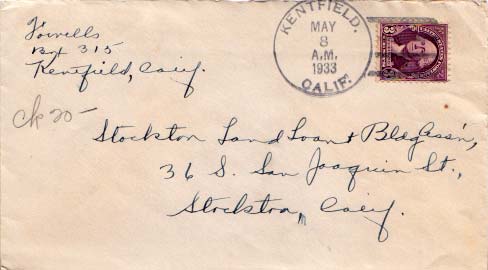 Fowells
Box 315
Kentfield, Calif.
KENTFIELD.
MAY
8
A.M.
1933
CALIF.
3
3
ck 20-
Stockton Land Loan & Bldg Ass'n,
36 S. San Joaquin St.,
Stockton, Calif.